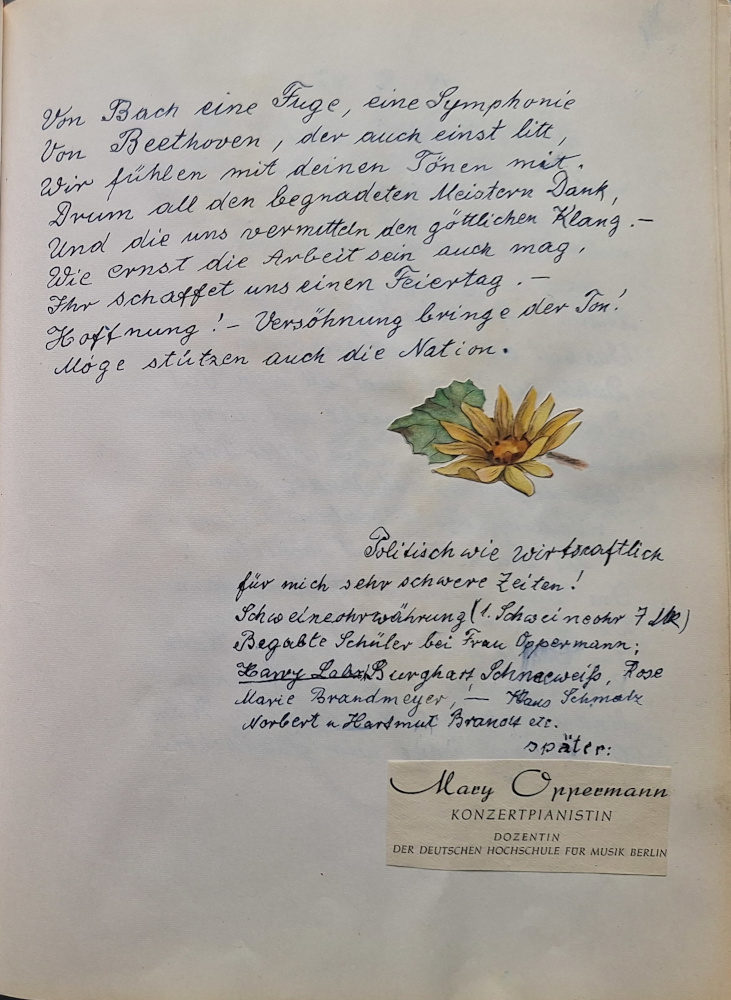 Von Bach eine Fuge, eine Symphonie
Von Beethoven, der auch einst litt,
Wir fühlen mit deinen Tönen mit.
Drum all den begnadeten Meistern Dank,
Und die uns vermitteln den göttlichen Klang. –
Wie ernst die Arbeit sein auch mag,
Ihr schaffet uns einen Feiertag. –
Hoffnung! – Versöhnung bringe der Ton!
Möge stützen auch die Nation.
Politisch wie wirtschaftlich
für mich sehr schwere Zeiten!
Schweineohrwährung (1. Schweineohr 7 DM)
Begabte Schüler bei Frau Oppermann;
Harry Burghart Schneeweiß, Rose
Marie Brandmeyer, – Hans Schmalz
Norbert u Hartmut Brandt etc.
später:
Mary Oppermann
KONZERTPIANISTIN
DOZENTIN
DER DEUTSCHEN HOCHSCHULE FÜR MUSIK BERLIN